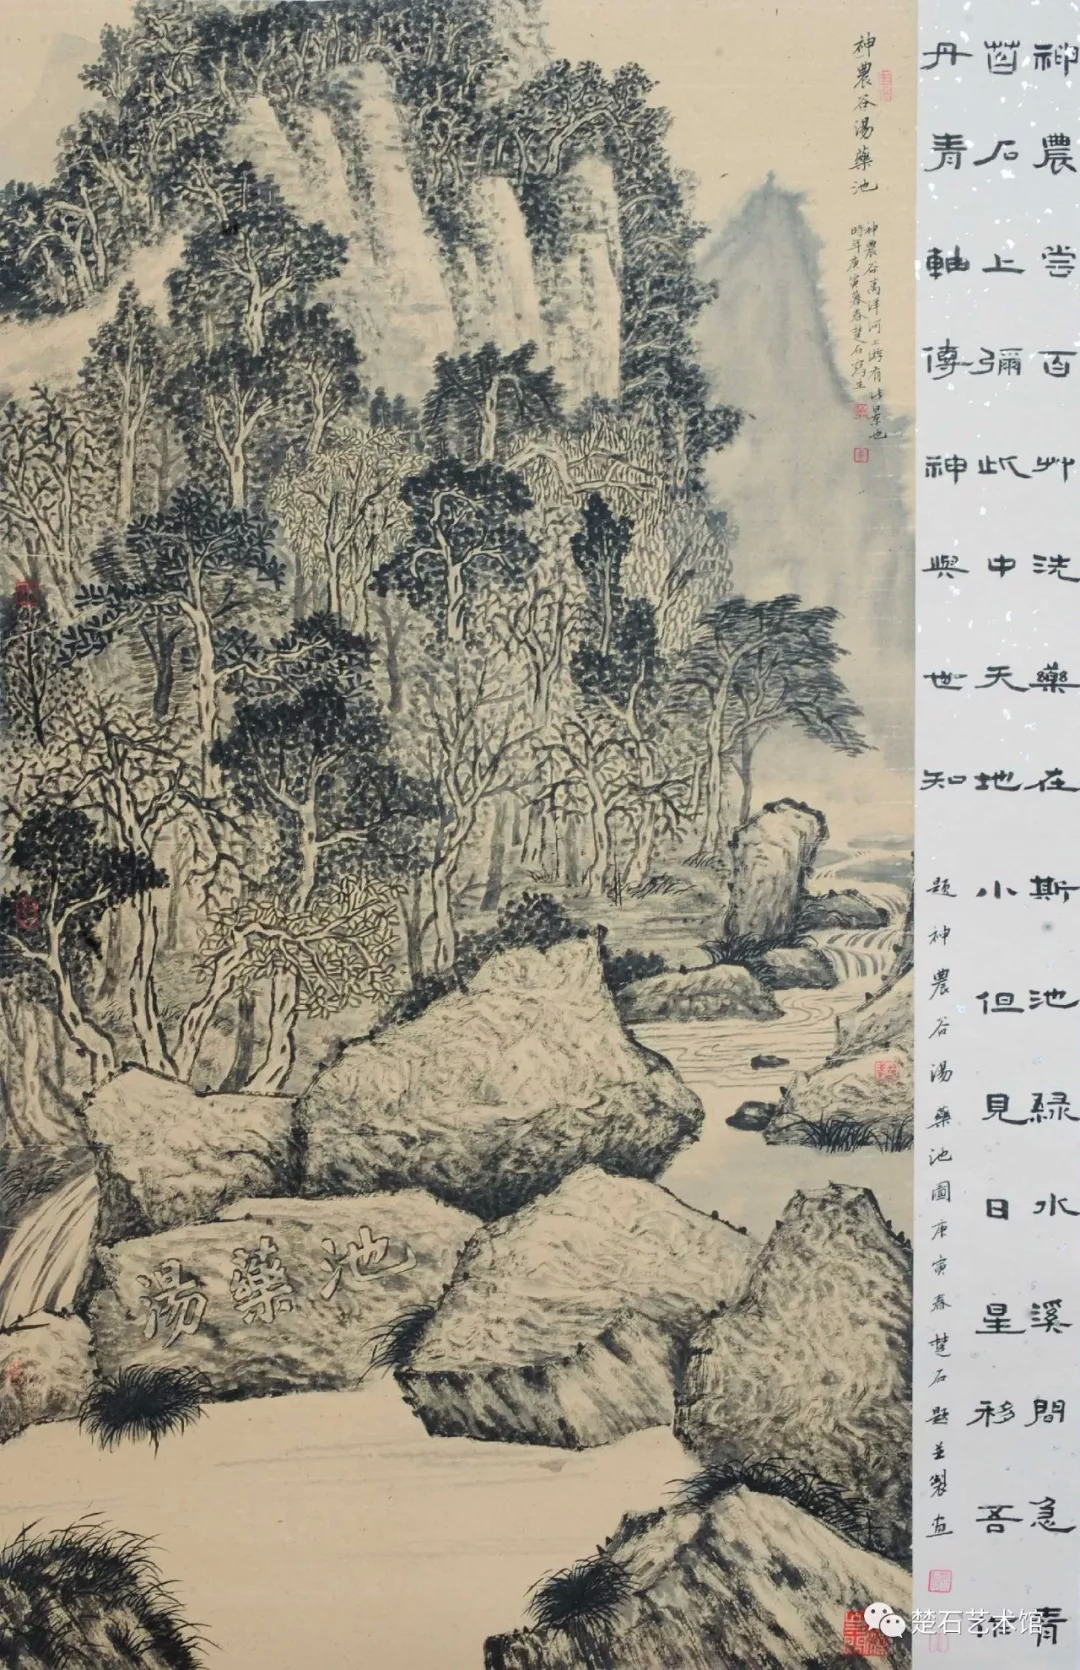 神農嘗百艸洗藥在斯池綠水溪間急青
苔石上彌此中天地小但見日星移吾
丹青軸傳神與世知
題神農谷湯藥池圖庚寅春楚石題並製
神農谷湯藥池
神農谷萬洋河上游有此景也
時年庚寅暮春楚石寫生
湯藥池
楚石艺术馆